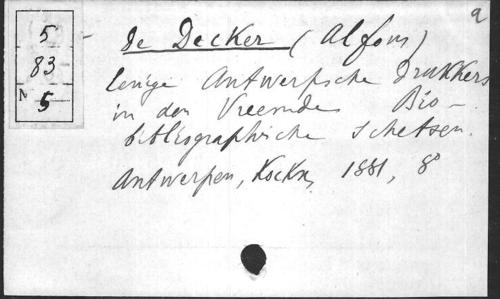 a
5
83
N 5
De Decker (Alfons)
Eenige Antwerpsche Drukkers
in den Vreemde Bio-
bibliographische schetsen.
Antwerpen, Kockx, 1881, 8°